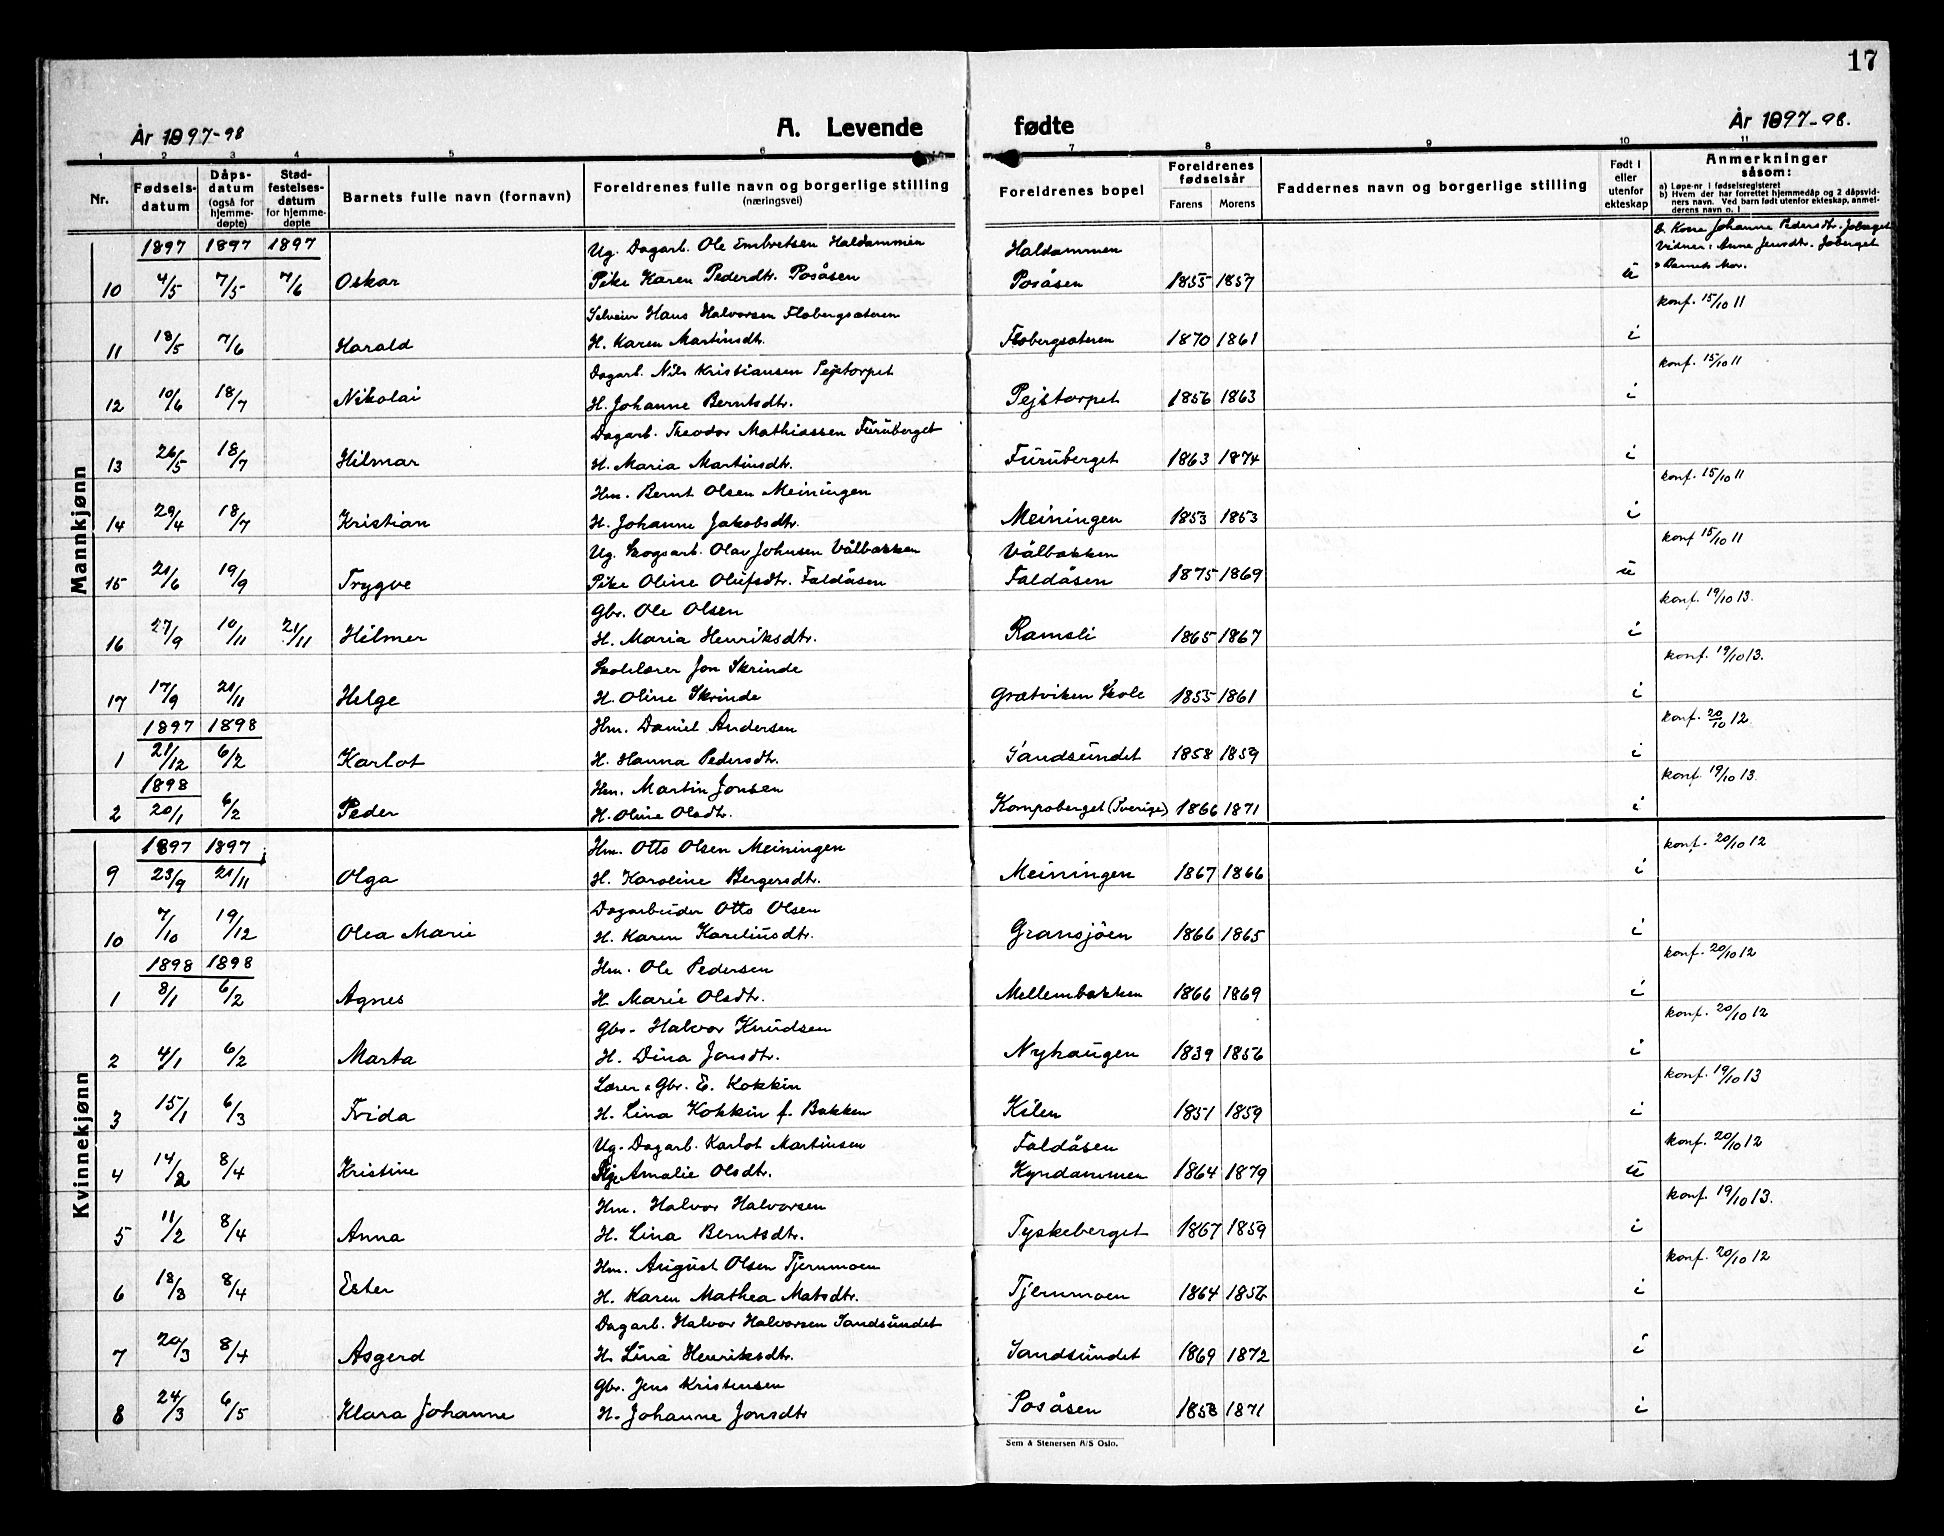 17
År 1897-98
A. Levende fødte
År 1897-98.
1 2 3 4 5 6 7 8 9 10 11
Nr. Fødsels-datum Dåps-datum (også for hjemme-døpte) Stad-festelses-datum for hjemme-døpte Barnets fulle navn (fornavn) Foreldrenes fulle navn og borgerlige stilling (næringsvei) Foreldrenes bopel Foreldrenes fødselsår Farens Morens Faddernes navn og borgerlige stilling Født i eller utenfor ekteskap Anmerkninger såsom:
a) Løpe-nr i fødselsregisteret
b) Hvem der har forrettet hjemmedåp og 2 dåpsvid-
ners navn. Ved barn født utenfor ekteskap, anmel-
derens navn o. l
Mannkjønn
1897 1897 1897 Ug. Dagarb. Ole Embretsen Haldammen Haldammen b. Kone Johanne Pedersdt. Joberget
Vidner: Anne Jensdt. Joberget
10 4/5 7/5 7/6 Oskar Pike Karen Pederdt. Posåsen Posåsen 1855 1857 u Barnets Mor.
Selveier Hans Halvorsen Flobergsæteren konf. 15/10 11
11 18/5 7/6 Harald H. Karen Martinsdt. Flobergsæteren 1870 1861 i
Dagarb. Nils Kristiansen Pejstorpet konf. 15/10 11
12 10/6 18/7 Nikolai H. Johanne Berntsdtr. Pejstorpet 1856 1863 i
Dagarb. Theodor Mathiassen Furuberget
13 26/5 18/7 Hilmar H. Maria Martinsdtr. Furuberget 1863 1874 i
Hm. Bernt Olsen Meiningen konf. 15/10 11
14 29/4 18/7 Kristian H. Johanne Jakobsdtr. Meiningen 1853 1853 i
Ug. Skogsarb. Olav Johnsen Vålbakken Vålbakken konf 15/10 11
15 21/6 19/9 Trygve Pike Oline Olufsdtr. Faldåsen Faldåsen 1875 1869 u
Gbr. Ole Olsen konf. 19/10 13.
16 27/9 10/11 21/11 Hilmer H. Maria Henriksdtr. Ramsli 1865 1867 i
Skolelærer Jon Skrinde konf. 19/10 13.
17 17/9 21/11 Helge H. Oline Skrinde Grætviken Skole 1855 1861 i
1897 1898 Hm. Daniel Andersen konf. 20/10 12
1 21/12 6/2 Karlot H. Hanna Pedersdtr. Sandsundet 1858 1859 i
1898 Hm. Martin Jonsen konf. 19/10 13.
2 20/1 6/2 Peder H. Oline Olsdtr. Kompsberget (Sverige) 1866 1871 i
Kvinnekjønn
1897 1897 Hm. Otto Olsen Meiningen konf. 20/10 12
9 23/9 21/11 Olga H. Karoline Bergersdtr. Meiningen 1867 1866 i
Dagarbeider Otto Olsen
10 7/10 19/12 Olea Marie H. Karen Kareliusdtr. Gransjöen 1866 1865 i
1898 1898 Hm. Ole Pedersen konf. 20/10 12
1 8/1 6/2 Agnes H. Marie Olsdtr. Mellembakken 1866 1869 i
Gbr. Halvor Knudsen konf. 20/10 12
2 4/1 6/2 Marta H. Dina Jonsdtr. Nyhaugen 1839 1856 i
Lærer & Gbr. E. Kokkin konf. 19/10 13
3 15/1 6/3 Frida H. Lina Kokkin f. Bakken Kilen 1851 1859 i
Ug. Dagarb. Karlot Martinsen Faldåsen konf. 20/10 12
4 14/2 8/4 Kristine Amalie Olsdtr. Kyndammen 1864 1879 u
Hm. Halvor Halvorsen konf. 19/10 13.
5 11/2 8/4 Anna H. Lina Berntsdtr. Tyskeberget 1867 1859 i
Hm. August Olsen Tjernmoen konf. 20/10 12
6 18/3 8/4 Ester H. Karen Mathea Matsdtr. Tjernmoen 1864 1856 i
Dagarb. Halvor Halvorsen Sandsundet
7 20/3 8/4 Asgerd H. Lina Henriksdtr. Sandsundet 1869 1872 i
Gbr. Jens Kristensen
8 24/3 6/5 Klara Johanne H. Johanne Jonsdtr Posåsen 1858 1871 i
Sem & Stenersen A/S Oslo.